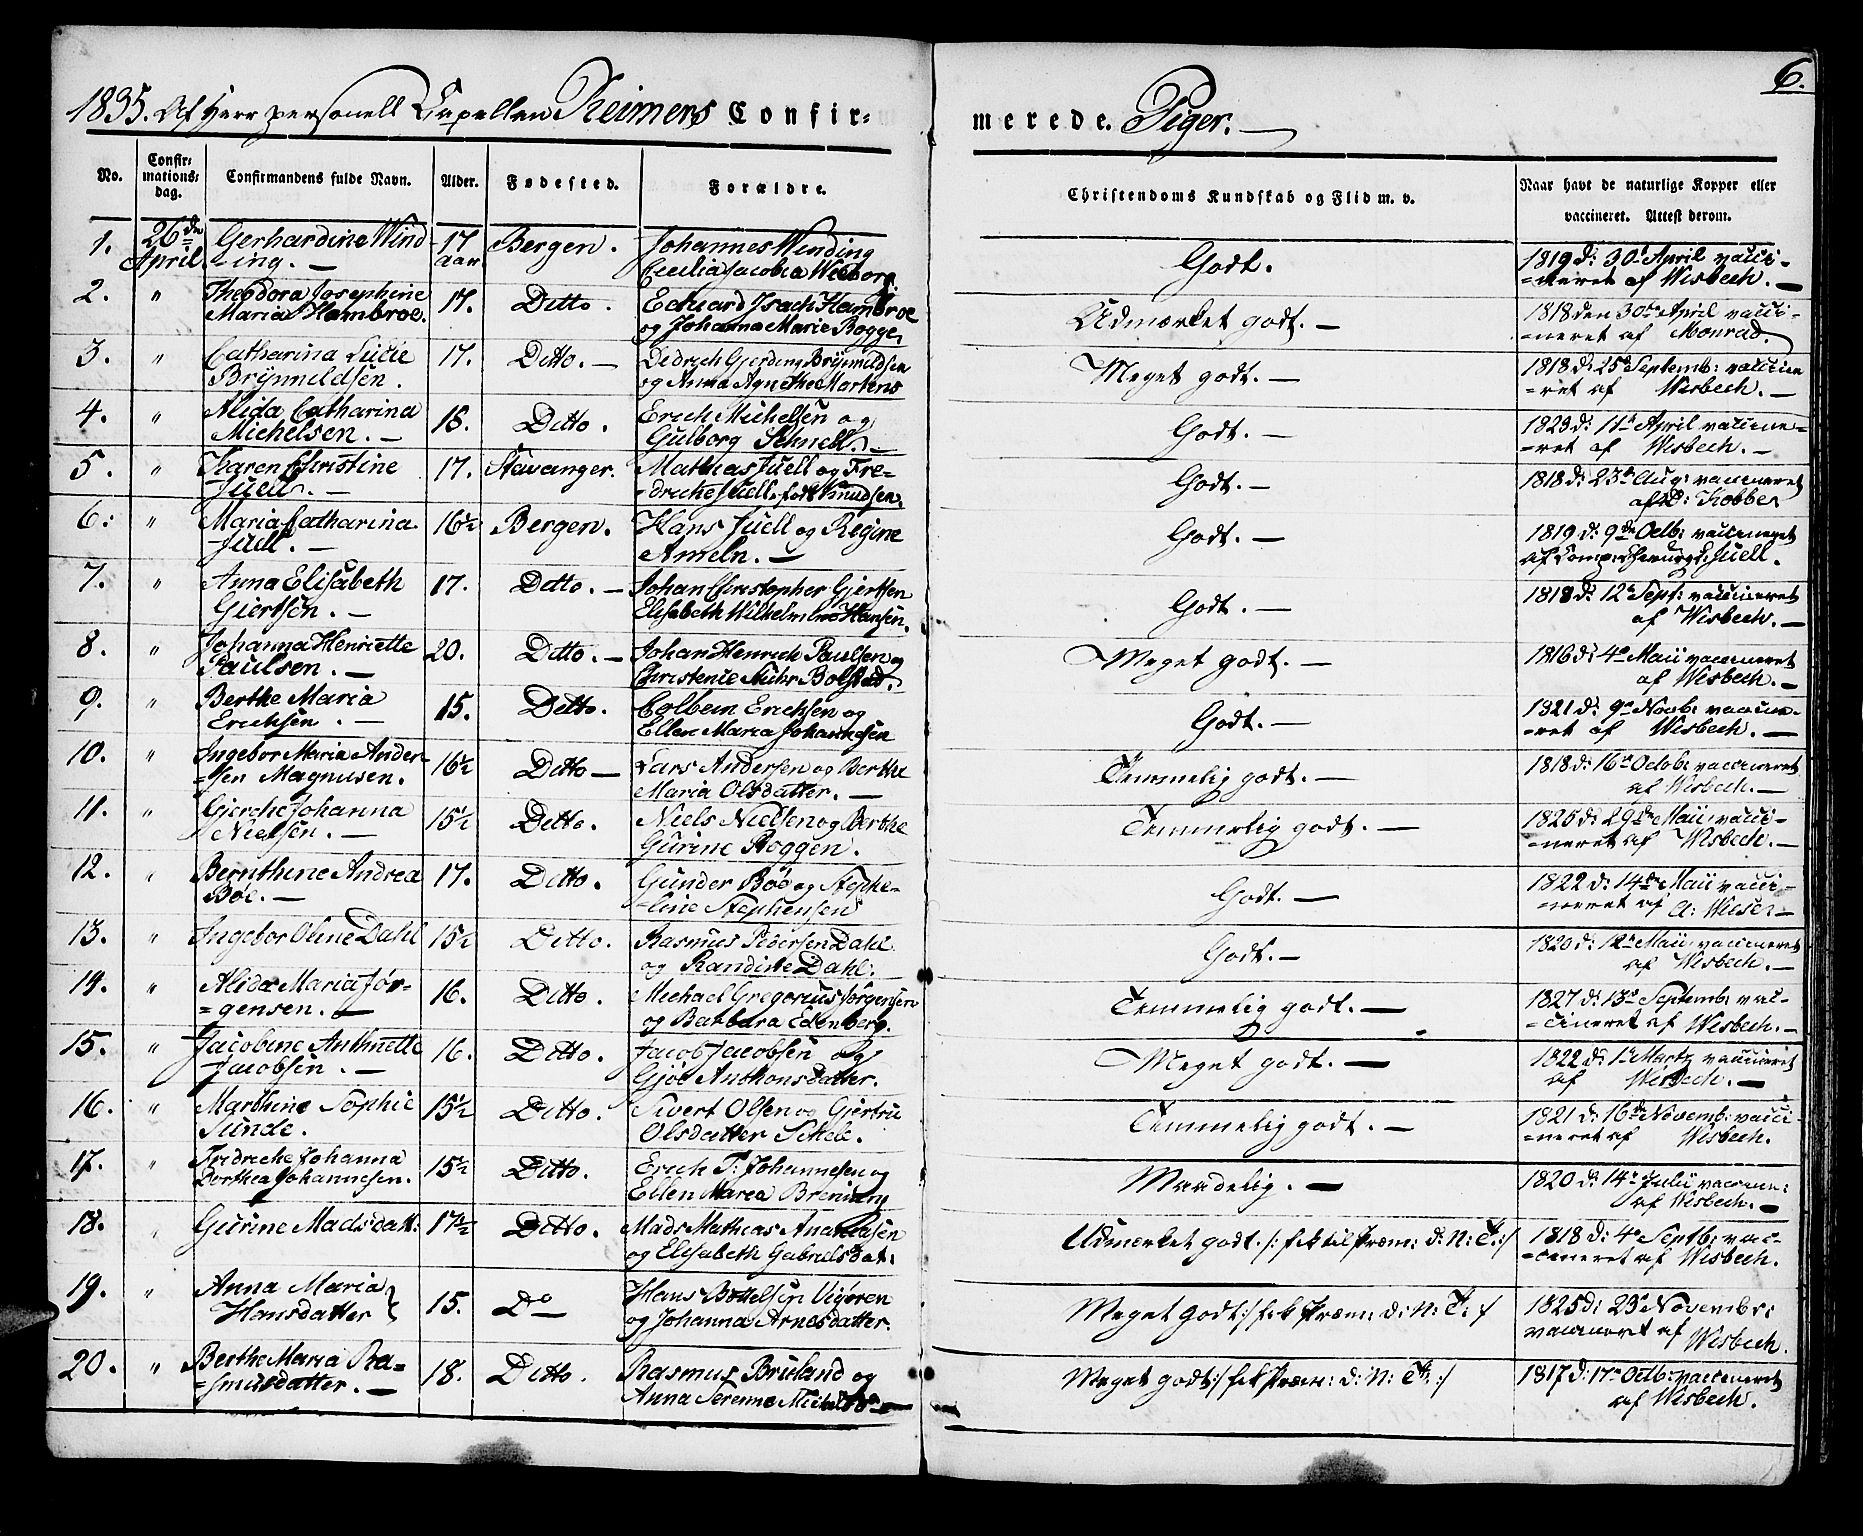 6.
1835. Af Herr personell Capellan Reimers Confir=
merede. Piger.
No.
Confir=
mations=
dag.
Confirmandens fulde Navn.
Alder.
Fødested.
Forældre.
Christendoms Kundskab og Flid m. v.
Naar havt de naturlige Kopper eller
vaccineret. Attest derom.
1. 26de Gerhardine Wind 17 Bergen. Johannes Winding
April. ling. aar Cecilia Jacobia Wesborg
Godt. 1819 d: 30 April vacci-
=neret af Wisbech.
2. " Theodora Josephine 17. Ditto. Eduard Isach Hambroe
Maria Hambroe. og Johanna Marie Rogge.
Udmærket godt. 1818 den 30te April vacci-
=neret af Monrad.
3. " Catharina Lucie 17. Ditto. Didrich Gjerding Brynnildsen
Brynnildsen. og Anna Agnethe Martens
Meget godt. 1818 d: 25de Septemb: vaccine
=ret af Wisbech.
4. " Alida Catharina 18. Ditto. Erich Michelsen og
Michelsen. Gulborg Schnell.
Godt. 1823 d: 11te April vaccine=
=ret af Wisbech.
5. " Karen Christine 17. Stavanger. Mathias Juell og Fre=
Juell. =driche Juell, født Knudsen.
Godt. 1818 d: 23de Aug: vaccineret
af D: Kobber
6: " Maria Catharina 16½ Bergen. Hans Juell og Regine
Juell. Ameln.
Godt. 1819 d: 9de Octb: vaccineret
af Comp: Chirurg: Juell.
7. " Anna Elisabeth 17. Ditto. Johan Christopher Gjertsen
Giertsen. Elisabeth Wilhelmine Hansen.
Godt. 1818 d: 12te Sept: vaccineret
af Wisbech.
8. " Johanna Henriette 20. Ditto. Johan Henrich Paulsen og
Paulsen. Christenie Suhr Bolstad.
Meget godt. 1816 d: 4de Maii vaccineret
af Wisbech.
9. " Berthe Maria 15. Ditto. Colbein Erichsen og
Erichsen. Ellen Maria Johannesen
Godt. 1821 d: 9de Novb: vaccine-
=ret af Wisbech.
10. " Ingebor Maria Ander= 16½ Ditto Lars Andersen og Berthe
=sen Magnusen. Maria Olsdatter.
Temmelig godt. 1818 d: 16de Octob: vaccineret
af Wisbech.
11. " Gjerche Johanna 15½ Ditto. Niels Nielsen og Berthe
Nielsen. Gurine Roggen.
Temmelig godt. 1825 d: 29de Maii vacci-
=neret af Wisbech.
12. " Bernthine Andrea 17. Ditto. Gunder Böe og Stephe=
Böe. =line Stephensen
Godt. 1822 d: 14de Maii vacci-
=neret af A: Wieser
13. " Ingebor Oline Dahl 15½ Ditto. Rasmus Pedersen Dahl
og Randine Dahl.
Godt. 1820 d: 12te Maii vaccineret
af Wisbech.
14. " Alida Maria Jör= 16. Ditto. Michael Gregorius Jörgensen
=gensen. og Barbara Edenberg.
Temmelig godt. 1827 d: 13de Septemb: vac-
=cineret af Wisbech.
15. " Jacobine Anthnette 16. Ditto. Jacob Jacobsen og
Jacobsen. Gjöe Anthonsdatter.
Meget godt. 1822 d: 1te Martz vaccineret
af Wisbech.
16. " Marthine Sophie 15½ Ditto. Sivert Olsen og Gjertru
Sunde. Olsdatter Schee.
Temmelig godt. 1821 d: 16de Novemb: vacci-
=neret af Wisbech.
17. " Fridriche Johanna 15½ Ditto. Erich T: Johannesen og
Dorthea Johannesen. Ellen Maria Brening
Maadelig. 1820 d: 14de Julii vaccine:
af Wisbech.
18. " Gurine Madsdatt: 17½ Ditto. Mads Mathias Ananasen
og Elisabeth Gabrielsdat:
Udmærket godt. /: fik til Præm: d: N: T: :/ 1818 d: 4de Septb: vac=
=cineret af Wisbech.
19. " Anna Maria 15. Do Hans Bottelsen Vigören
Hansdatter og Johanna Arnesdatter.
Meget godt :/ fik Præm: d: N: T: :/ 1825 d: 23de Novembr:
vaccineret af Wisbech.
20. " Berthe Maria Ra= 18. Ditto. Rasmus Bruland og
=smusdatter. Anna Serenne Michelsdr
Meget godt :/ fik Præm: d: N: T: :/ 1817 d: 17de Octb: vaccineret
af Wisbech.